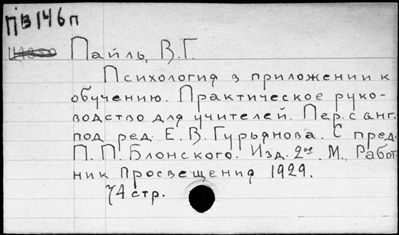 ПВ146п
Пайль, В.Г.
Психология в приложении к
обучению. Практическое руко-
водство для учителей. Пер. с анг.
под ред. Е. В. Гурьянова. С пред.
П. П. Блонского. Изд. 2ое. М., Работ-
ник Просвещения 1929.
74 стр.